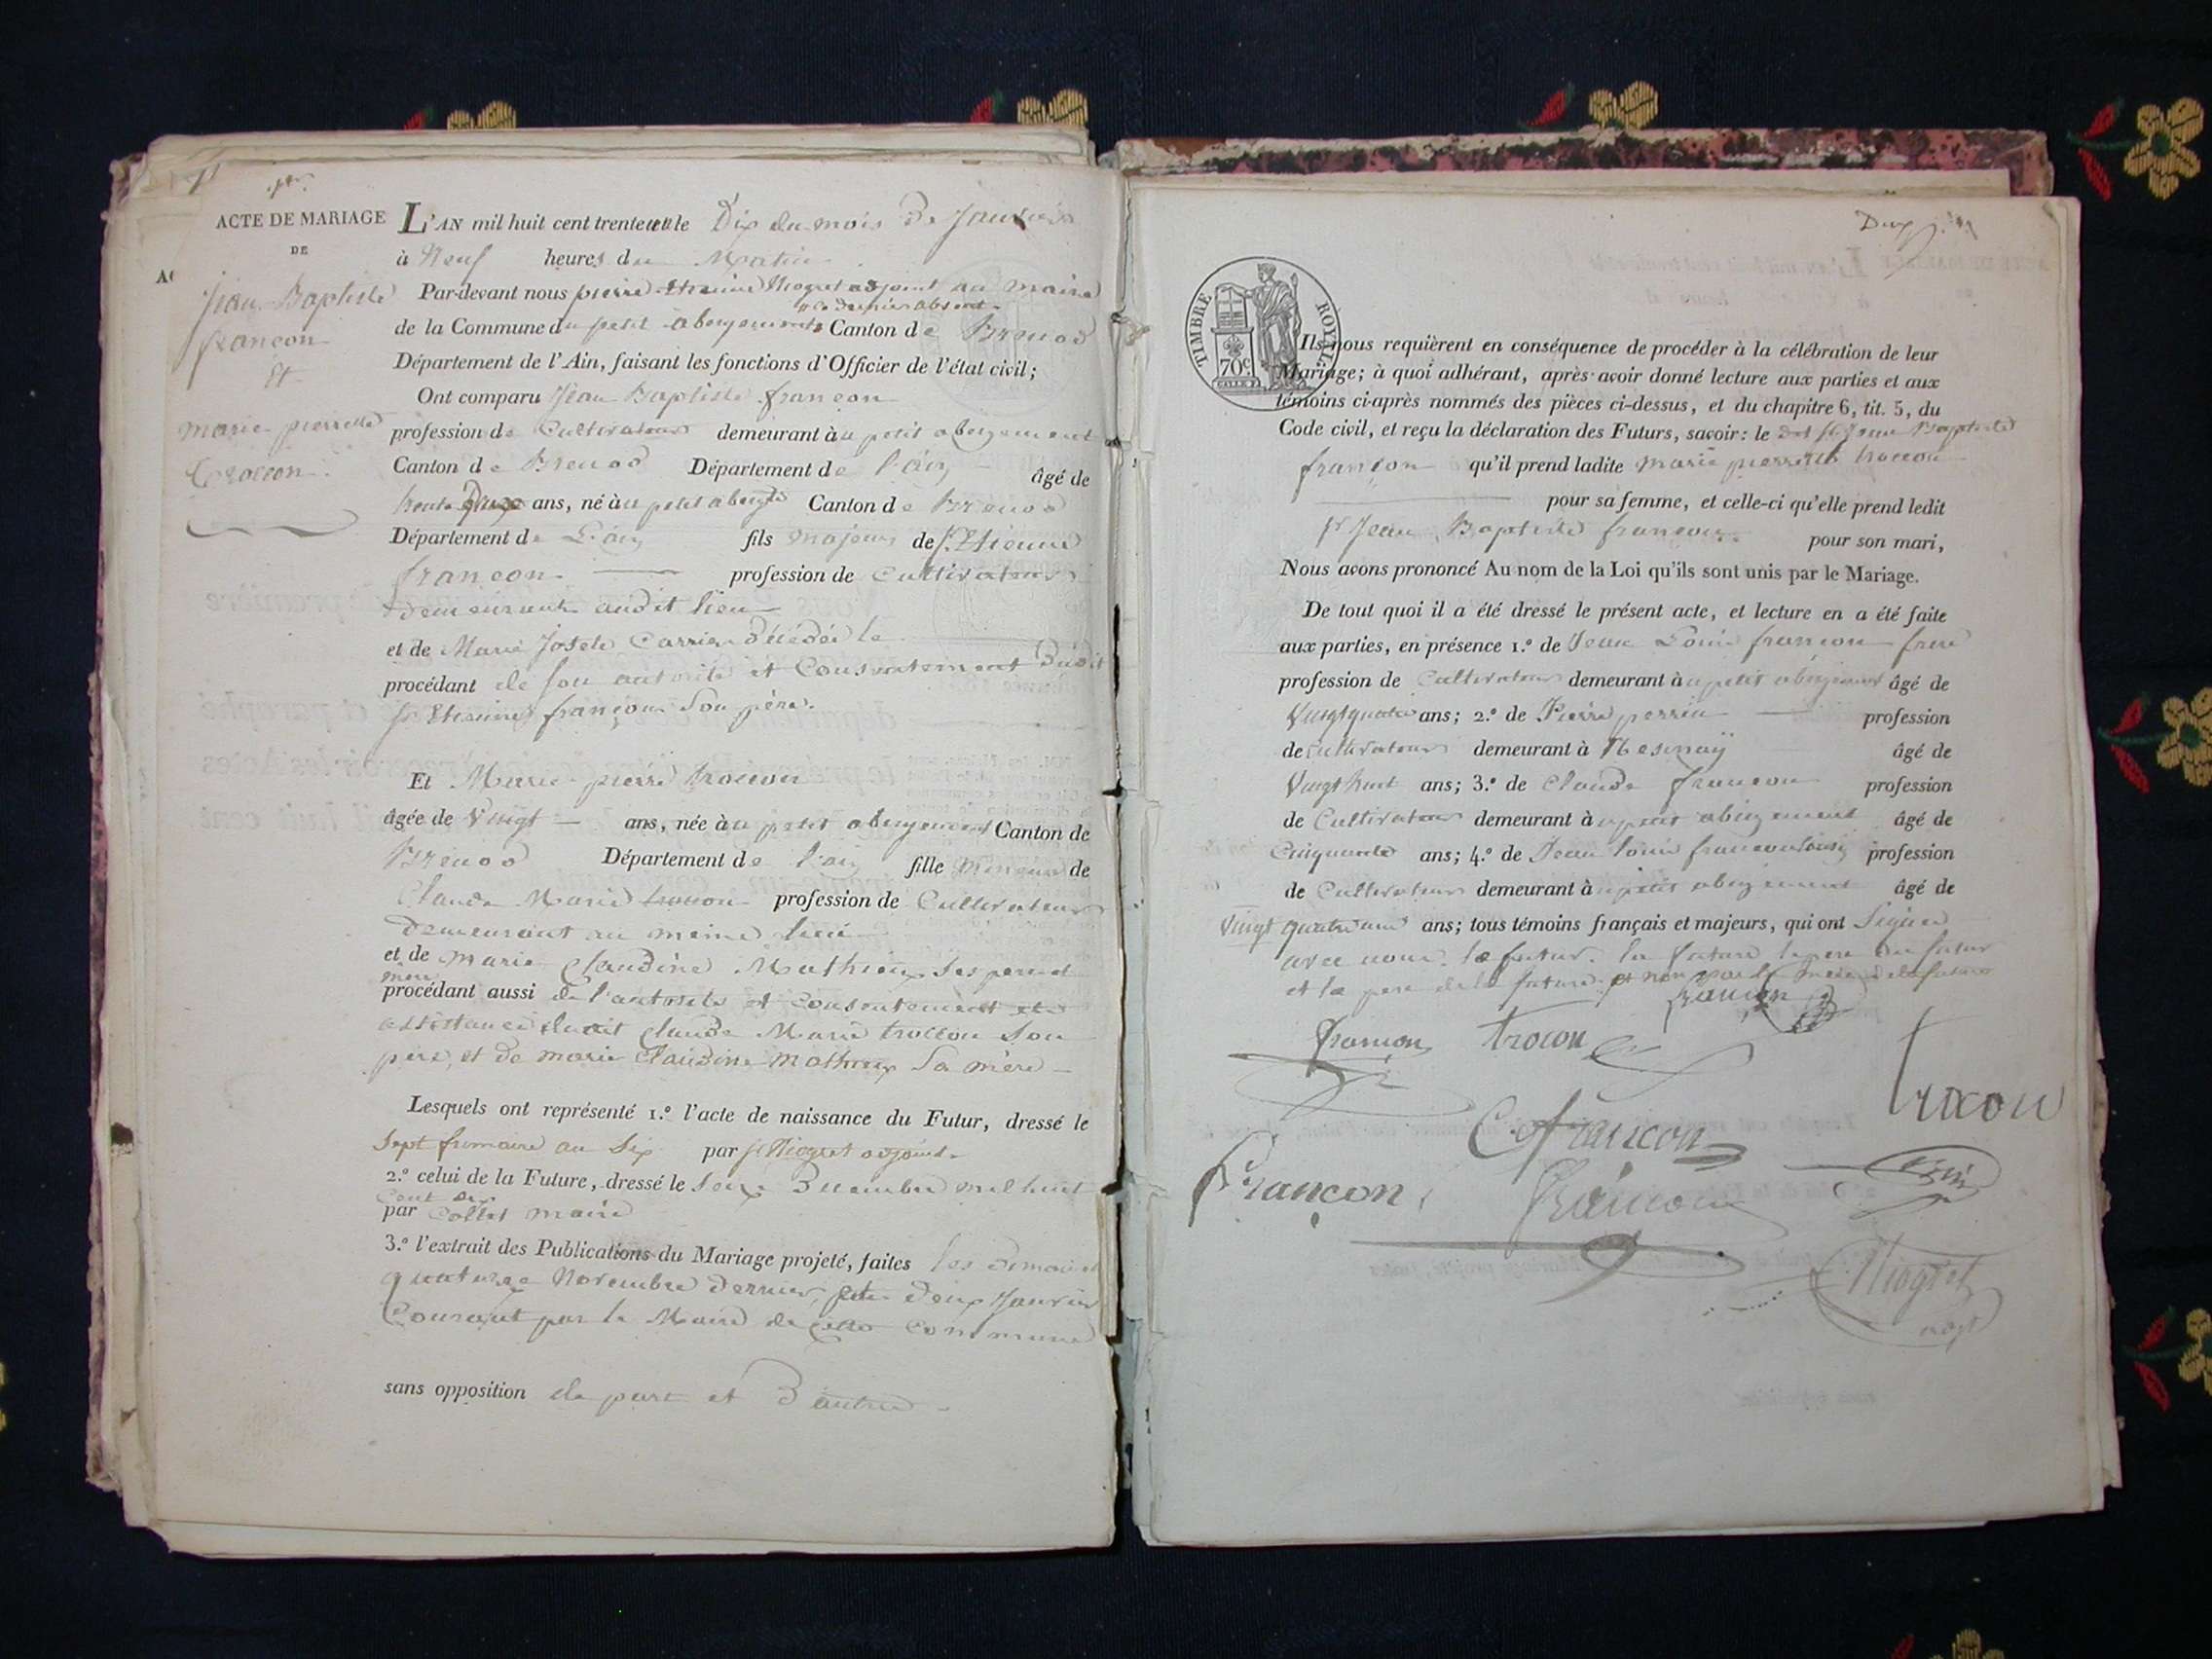 ACTE DE MARIAGE
DE
Jean Baptiste
françon
Et
marie pierrette
troccon.
L'AN mil huit cent trente et un le Dix du mois de Janvier
à Neuf heures du Matin
Par-devant nous pierre Etienne Niogret adjoint au maire
ce dernier absent
de la Commune du petit abergement Canton de Brenod
Département de l'Ain, faisant les fonctions d'Officier de l'état civil;
Ont comparu Jean Baptiste françon
profession de Cultivateur demeurant à u petit abergement
Canton de Brenod Département de l'ain âgé de
trente ans, né à u petit abergt Canton de Brenod
Département de L'ain fils majeur de Sr Etienne
françon profession de Cultivateur
demeurant audit lieu
et de Marie Josete Carrier décédée le
procédant de son autorité et Consentement dudit
sr Etienne françon Son père.
Et Marie pierre troccon
âgée de Vingt ans, née à u petit abergement Canton de
Brenod Département de l'ain fille mineure de
Claude Marie troccon profession de Cultivateur
demeurant au meme lieu
et de marie Claudine Mathieux Ses pere et
mere
procédant aussi de l'autorité et consentement et
assistance dudit Claude Marie troccon Son
père, et de marie Claudine mathieux Sa mère
Lesquels ont représenté 1.º l'acte de naissance du Futur, dressé le
Sept frimaire an Six par sr Niogret adjoint.
2.º celui de la Future, dressé le Seize Decembre mil huit
cent dix
par Collet maire
3.º l'extrait des Publications du Mariage projeté, faites les dimanches
quatorze Novembre dernier, et deux Janvier
Courant par le Maire de cette commune
sans opposition de part et d'autre
Deux
TIMBRE ROYAL
70c
Ils nous requièrent en conséquence de procéder à la célébration de leur
Mariage; à quoi adhérant, après avoir donné lecture aux parties et aux
témoins ci-après nommés des pièces ci-dessus, et du chapitre 6, tit. 5, du
Code civil, et reçu la déclaration des Futurs, savoir: le dit sr Jean Baptiste
françon qu'il prend ladite marie pierrette troccon
pour sa femme, et celle-ci qu'elle prend ledit
sr Jean Baptiste françon. pour son mari,
Nous avons prononcé Au nom de la Loi qu'ils sont unis par le Mariage.
De tout quoi il a été dressé le présent acte, et lecture en a été faite
aux parties, en présence 1.º de Jean Louis françon frere
profession de Cultivateur demeurant à u petit abergement âgé de
Vingt quatre ans; 2.º de Pierre perrin profession
de cultivateur demeurant à âgé de
Vingt huit ans; 3.º de Claude françon profession
de Cultivateur demeurant à u petit abergement âgé de
Cinquante ans; 4.º de Jean louis françon profession
de Cultivateur demeurant à u petit abergement âgé de
Vingt quatre ans; tous témoins français et majeurs, qui ont Signé
avec nous. le futur. la future le pere du futur
et le pere de la future. et non pas la mere de la future
françon
françon troccon
trocon
C françon
françon
françon
Niogret
adjt